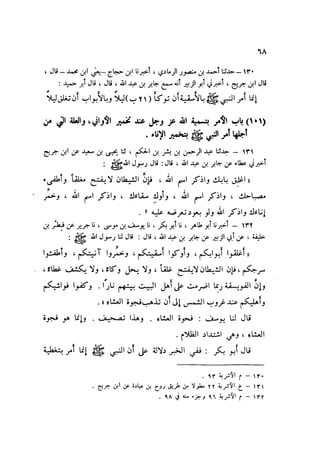 ٦٨
١٣٠ – حدثنا أحمد بن منصور الرمادي ، أخبرنا ابن حجاج – يعني ابن محمد – قال ،
قال ابن جريج ، أخبرني أبو الزبير أنه سمع جابر بن عبد الله ، قال ، قال أبو حميد :
إنما أمر النبي ﷺ بالأسقية أن توكأ ( ٢١ ب ) ليلاً وبالأبواب أن تغلق ليلا
(١٠١) باب الأمر بتسمية الله عز وجل عند تخمير الأواني ، والعلة التي من
أجلها أمر النبي ﷺ بتخمير الإناء .
١٣١ – حدثنا عبد الرحمن بن بشر بن الحكم ، ثنا يحيى بن سعيد عن ابن جريج
أخبرني عطاء عن جابر بن عبد الله ، قال : قال رسول الله ﷺ :
« اغلق بابك واذكر اسم الله ، فإن الشيطان لا يفتح مغلقاً وأطفىء
مصباحك ، واذكر اسم الله ، وأوك سقاءك ، واذكر اسم الله ، وخمر
إناءك واذكر الله ولو بعود تعرضه عليه . »
١٣٢ – أخبرنا أبو طاهر ، نا أبو بكر ، نا يوسف بن موسى ، نا جرير عن فطر بن
خليفة ، عن أبي الزبير عن جابر بن عبد الله ، قال : قال لنا رسول الله ﷺ :
« أغلقوا أبوابكم ، وأوكوا أسقيتكم ، وخمروا آنيتكم ، وأطفئوا
سرجكم ، فإن الشيطان لا يفتح غلقاً ، ولا يحل وكاء ، ولا يكشف غطاء ،
وإن الفويسقة ربما اضرمت على أهل البيت بيتهم ناراً . وكفوا فواشيكم
وأهليكم عند غروب الشمس إلى أن تذهب فجوة العشاء »
قال لنا يوسف : فحوة العشاء . وهذا تصحيف . وإنما هو فجوة
العشاء ، وهي اشتداد الظلام .
قال أبو بكر : ففي الخبر دلالة على أن النبي ﷺ إنما أمر بتغطية
١٣٠ – م الأشربة ٩٣ .
١٣١ – خ الأشربة ٢٢ مطولا من طريق روح بن عبادة عن ابن جريج .
١٣٢ – م الأشربة ٩٦ وجزء منه في ٩٨ .